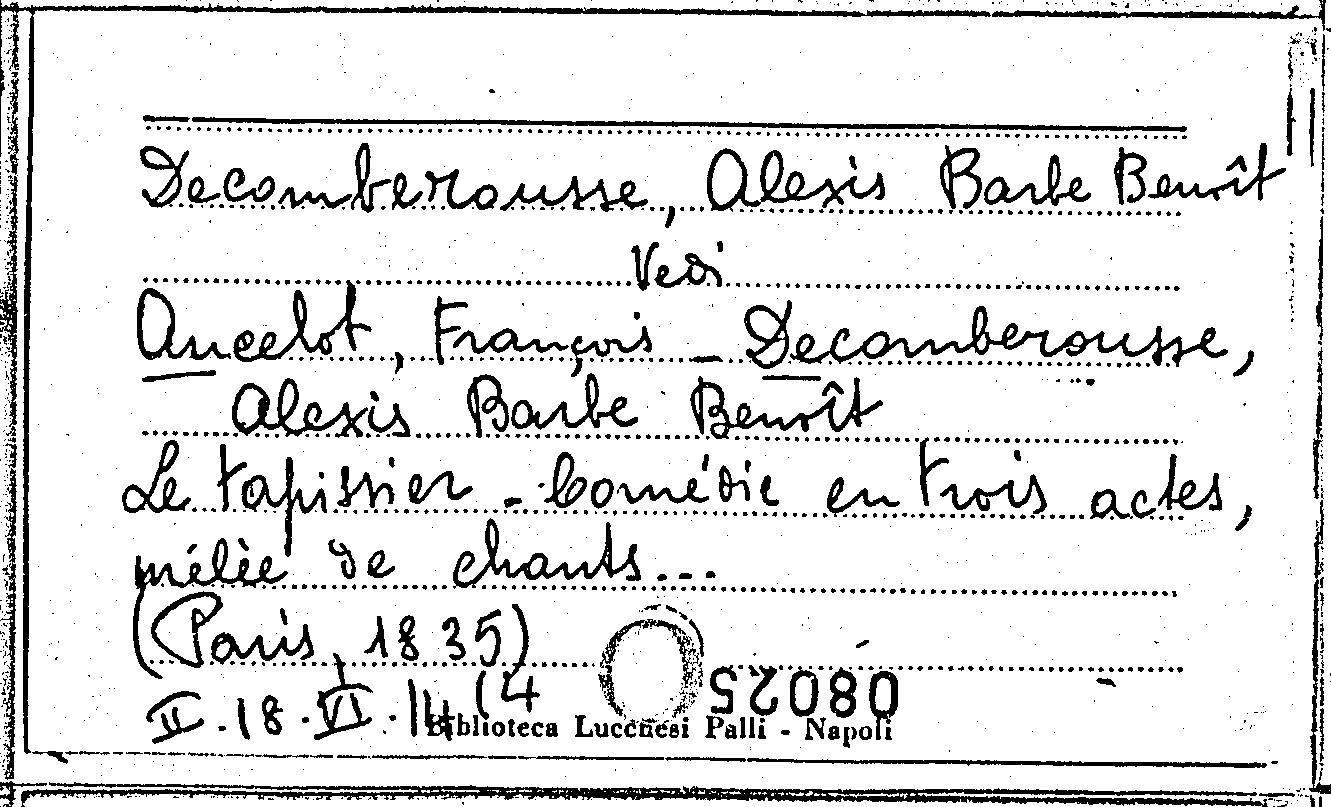 Decomberousse, Alexis Barbe Benoît
Vedi
Ancelot, François - Decomberousse,
Alexis Barbe Benoît
Le tapissier - Comédie en trois actes,
mélée de chants...
(Paris, 1835)
II.18.VI.14(4
08025
Biblioteca Lucchesi Palli - Napoli